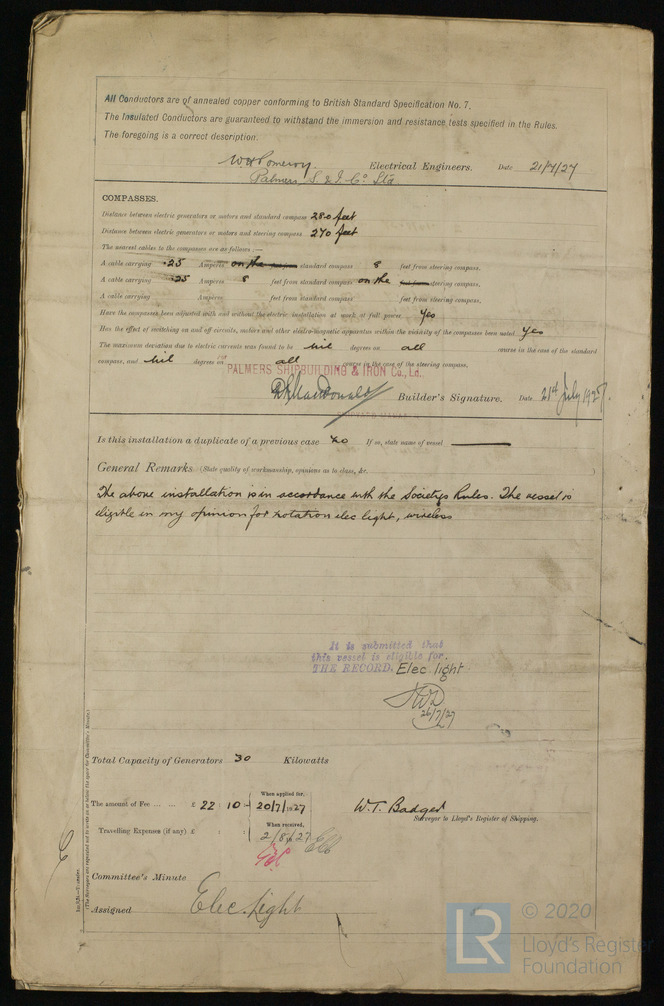 All Conductors are of annealed copper conforming to British Standard Specification No. 7.
The Insulated Conductors are guaranteed to withstand the immersion and resistance tests specified in the Rules.
The foregoing is a correct description.
WH Pomeroy. Electrical Engineers. Date 21/7/27
Palmers S. & I. Co. Ltd
COMPASSES.
Distance between electric generators or motors and standard compass 280 feet
Distance between electric generators or motors and steering compass 270 feet
The nearest cables to the compasses are as follows:—
A cable carrying .25 Amperes on the standard compass 8 feet from steering compass.
A cable carrying .25 Amperes 8 feet from standard compass on the steering compass.
A cable carrying Amperes feet from standard compass feet from steering compass.
Have the compasses been adjusted with and without the electric installation at work at full power Yes
Has the effect of switching on and off circuits, motors and other electro-magnetic apparatus within the vicinity of the compasses been noted Yes
The maximum deviation due to electric currents was found to be nil degrees on all course in the case of the standard
compass, and nil degrees on all course in the case of the steering compass.
PALMERS SHIPBUILDING & IRON Co., Ld.
MacDonald Builder's Signature. Date 21st July 1927.
Is this installation a duplicate of a previous case No If so, state name of vessel
General Remarks (State quality of workmanship, opinions as to class, &c.)
The above installation is in accordance with the Societys Rules. The vessel is
eligible in my opinion for notation elec light, wireless
It is submitted that
this vessel is eligible for
THE RECORD. Elec light
26/7/27
Total Capacity of Generators 30 Kilowatts
The amount of Fee ... ... £ 22 : 10 :- When applied for, 20/7/1927
W.T. Badger
Surveyor to Lloyd's Register of Shipping.
Travelling Expenses (if any) £ : : When received, 2/8/27
Committee's Minute
Assigned Elec. Light
LR © 2020
Lloyd's Register
Foundation